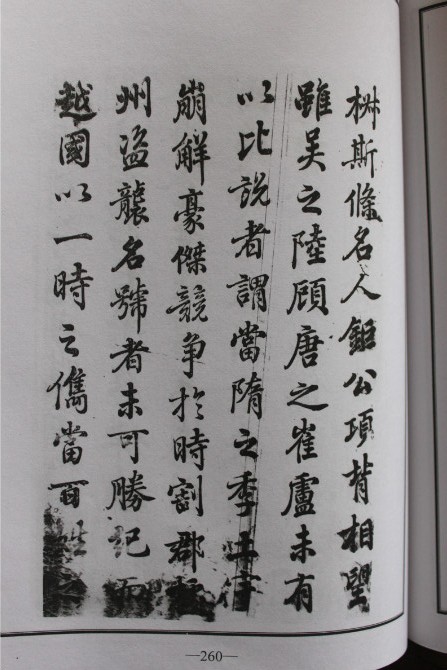 椒斯條名人鉅公項背相望
雖吳之陸顧唐之崔盧未有
以比說者謂當隋之季土宇
崩解豪傑競爭於時割郡
州盜襲名號者未可勝記而
越國以一時之儁當百姓之
—260—